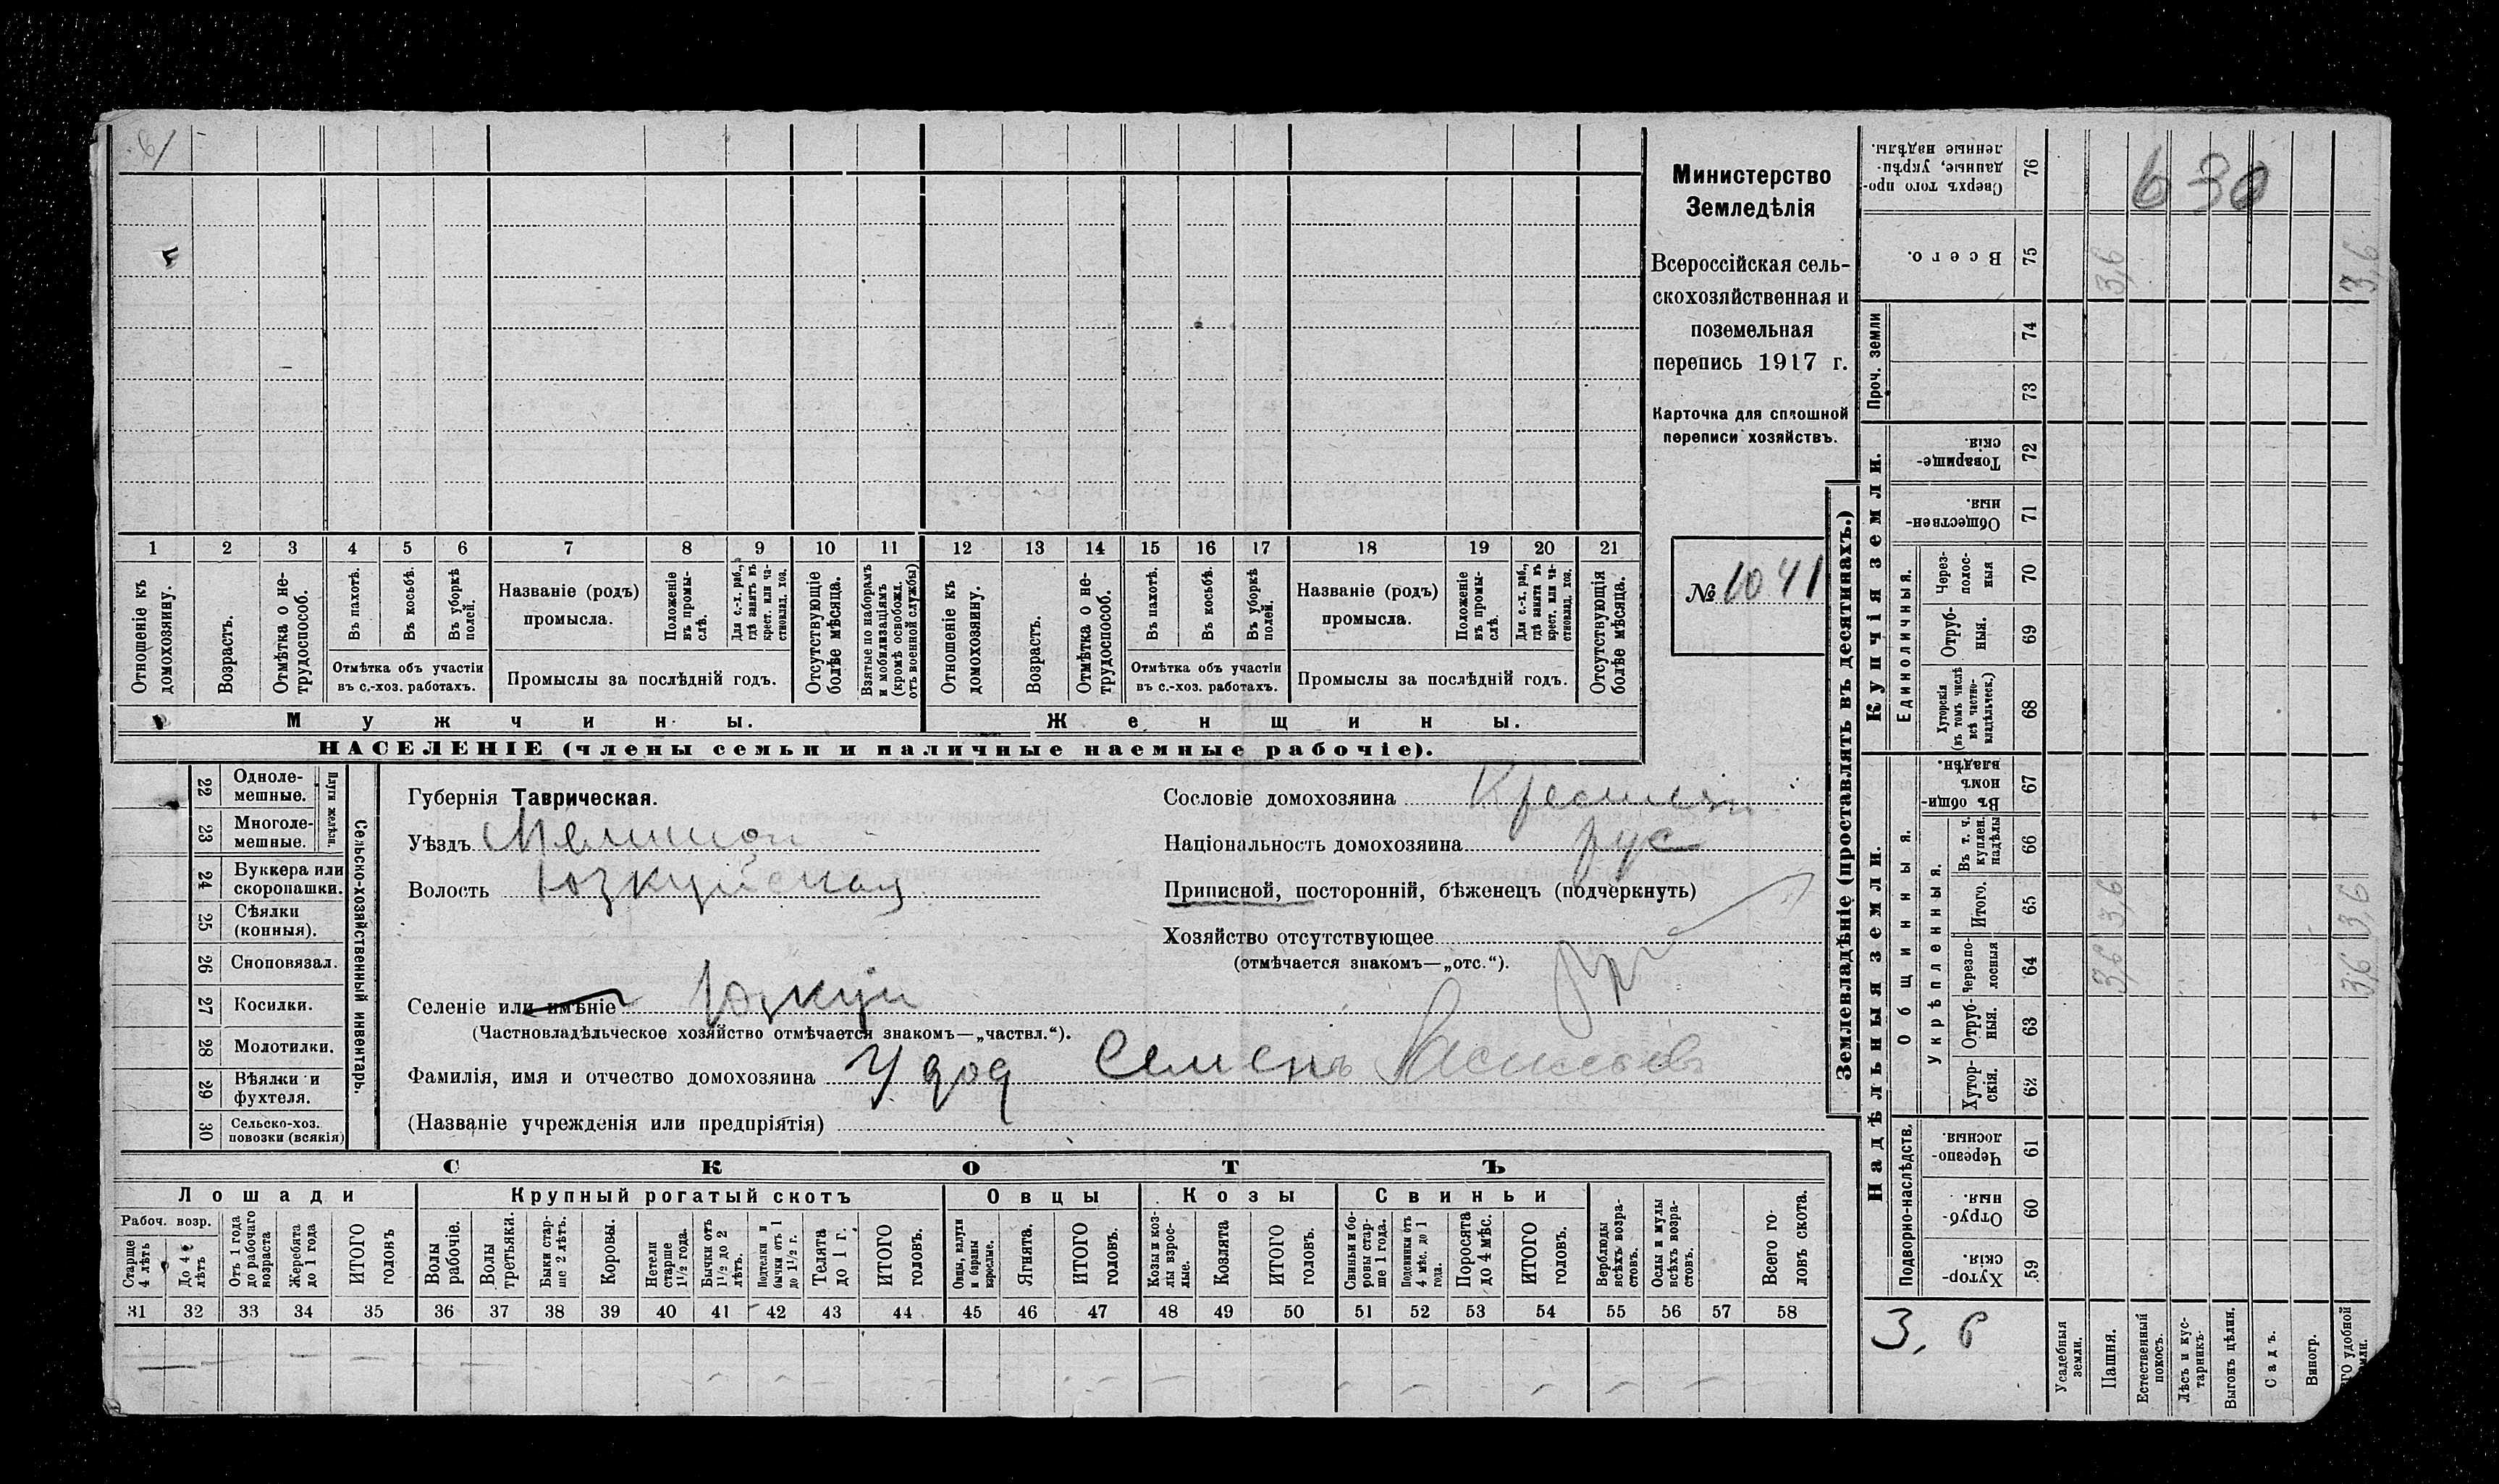 Министерство
Земледѣлія
Всероссійская сель-
скохозяйственная и
поземельная
перепись 1917 г.
Карточка для сплошной
переписи хозяйствъ.
№ 1041
1 2 3 4 5 6 7 8 9 10 11 12 13 14 15 16 17 18 19 20 21
Отношеніе къ домохозяину.
Возрастъ.
Отмѣтка о не-трудоспособ.
Въ пахотѣ.
Въ косьбѣ.
Въ уборкѣ полей.
Отмѣтка объ участіи
въ с.-хоз. работахъ.
Названіе (родъ)
промысла.
Положеніе въ промы-слѣ.
Для с.-х. раб., гдѣ занятъ въ крест. или ча-стновлад. хоз.
Промыслы за послѣдній годъ.
Отсутствующіе болѣе мѣсяца.
Взятые по наборамъ и мобилизаціямъ (кромѣ освобожд. отъ военной службы)
Отношеніе къ домохозяину.
Возрастъ.
Отмѣтка о не-трудоспособ.
Въ пахотѣ.
Въ косьбѣ.
Въ уборкѣ полей.
Отмѣтка объ участіи
въ с.-хоз. работахъ.
Названіе (родъ)
промысла.
Положеніе въ промы-слѣ.
Для с.-х. раб., гдѣ занята въ крест. или ча-стновлад. хоз.
Промыслы за послѣдній годъ.
Отсутствующія болѣе мѣсяца.
Мужчины. Женщины.
НАСЕЛЕНІЕ (члены семьи и наличные наемные рабочіе).
22 Одноле-мешные.
23 Многоле-мешные.
Плуги желѣзн.
24 Буккера или скоропашки.
25 Сѣялки (конныя).
26 Сноповязал.
27 Косилки.
28 Молотилки.
29 Вѣялки и фухтеля.
30 Сельско-хоз. повозки (всякія)
Сельско-хозяйственный инвентарь.
Губернія Таврическая.
Уѣздъ Мелитоп
Волость Юзкуйская
Селеніе или имѣніе Юзкуи
(Частновладѣльческое хозяйство отмѣчается знакомъ—„частвл.“).
Фамилія, имя и отчество домохозяина Удод Семенъ
(Названіе учрежденія или предпріятія)
Сословіе домохозяина Крестьян
Національность домохозяина рус
Приписной, посторонній, бѣженецъ (подчеркнуть)
Хозяйство отсутствующее
(отмѣчается знакомъ—„отс.“).
СКОТЪ
Лошади Крупный рогатый скотъ Овцы Козы Свиньи
Рабоч. возр.
Старше 4 лѣтъ
До 4 лѣтъ
Отъ 1 года до рабочаго возраста
Жеребята до 1 года
ИТОГО головъ
Волы рабочіе.
Волы третьяки.
Быки стар-ше 2 лѣтъ.
Коровы.
Нетели старше 1½ года.
Бычки отъ 1½ до 2 лѣтъ.
Подтелки и бычки отъ 1 до 1½ г.
Телята до 1 г.
ИТОГО головъ.
Овцы, валухи и бараны взрослые.
Ягнята.
ИТОГО головъ.
Козы и коз-лы взрос-лые.
Козлята
ИТОГО головъ.
Свиньи и бо-ровы стар-ше 1 года.
Подсвинки отъ 4 мѣс. до 1 года.
Поросята до 4 мѣс.
ИТОГО головъ.
Верблюды всѣхъ возра-стовъ.
Ослы и мулы всѣхъ возра-стовъ.
Всего го-ловъ скота.
31 32 33 34 35 36 37 38 39 40 41 42 43 44 45 46 47 48 49 50 51 52 53 54 55 56 57 58
Землевладѣніе (проставлять въ десятинахъ.)
Сверхъ того про-данные, укрѣп-ленные надѣлы. 76
630
Всего. 75 3,6 3,6
Проч. земли 74 73
Купчія земли.
Товарище-скія. 72
Обществен-ныя. 71
Единоличныя.
Через-полос-ныя 70
Отруб-ныя. 69
Хуторскія (въ томъ числѣ всѣ частно-владѣльческ.) 68
Надѣльныя земли.
Общинныя.
Въ общин-номъ владѣн. 67
Укрѣпленныя.
Въ т. ч. куплен. надѣлы 66
Итого. 65 3,6 3,6
Черезпо-лосныя 64 3,6 3,6
Отруб-ныя. 63
Хутор-скія. 62
Подворно-наслѣдств.
Черезпо-лосныя. 61
Отруб-ныя. 60
Хутор-скія. 59
3,6
Усадебныя земли.
Пашня.
Естественный покосъ.
Лѣсъ и кус-тарникъ.
Выгонъ цѣлин.
Садъ.
Виногр.
удобной